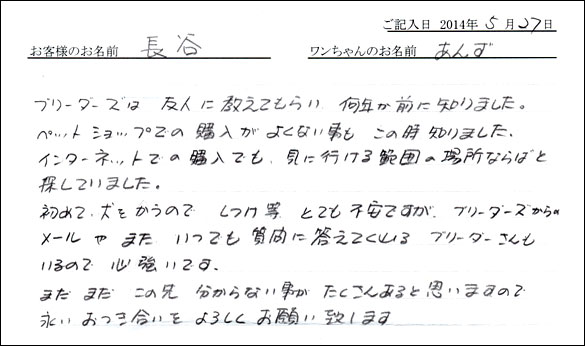 ご記入日 2014年 5月27日
お客様のお名前 長谷 ワンちゃんのお名前 あんず
ブリーダーズは 友人に教えてもらい 何年か前に知りました。
ペットショップでの購入がよくない事も この時知りました。
インターネットでの購入でも、見に行ける範囲の場所ならばと
探していました。
初めて、犬をかうので しつけ等 とても不安ですが、ブリーダーズからの
メールや また いつでも質問に答えてくれる ブリーダーさんも
いるので 心強いです。
まだまだ この先 分からない事が たくさんあると思いますので
永い おつき合いを よろしく お願い致します